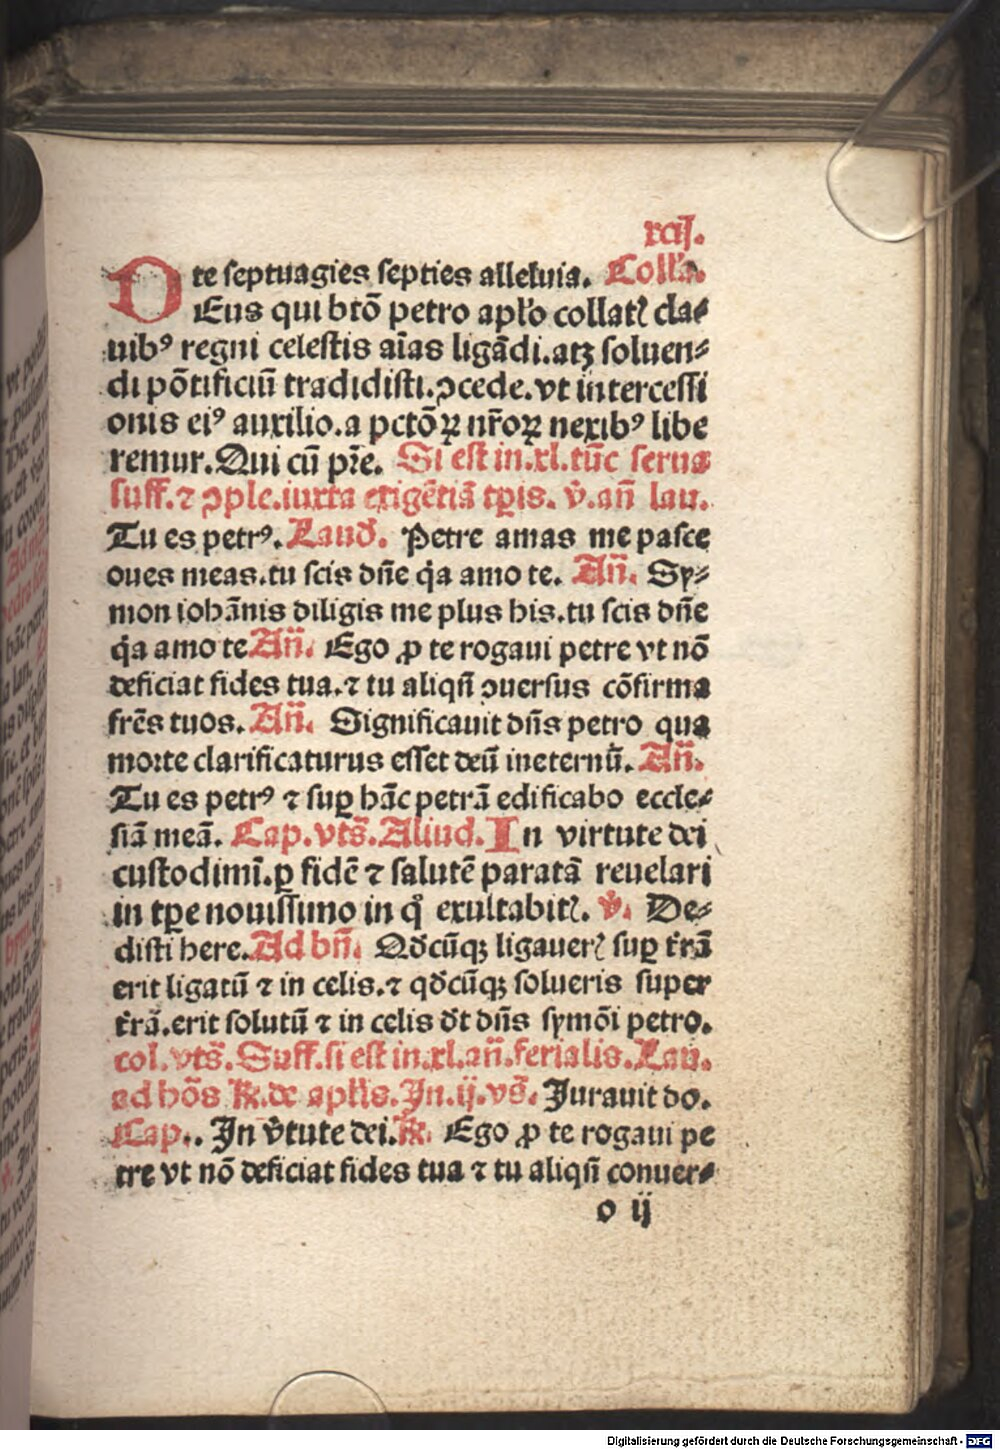 rcij.
te septuagies septies alleluia. Coll'a.
DEus qui btō petro apl'o collatꝭ cla⸗
uibꝰ regni celestis aīas ligādi.atꝫ soluen⸗
di pōtificiū tradidisti.ↄcede.vt intercessi
onis eiꝰ auxilio.a pctōꝝ nr̄oꝝ nexibꝰ libe
remur.Qui cū pr̄e. Si est in.xl.tūc serua
suff.⁊ ↄple.iuxta exigētiā tp̄is. v̄.an̄ lau.
Tu es petrꝰ. Laud̄. Petre amas me pasce
oues meas.tu scis dn̄e q̇a amo te. An̄. Sy⸗
mon iohānis diligis me plus his.tu scis dn̄e
q̇a amo te An̄. Ego ꝓ te rogaui petre vt nō
deficiat fides tua.⁊ tu aliqn̄ ↄuersus cōfirma
fr̄es tuos. An̄. Significauit dn̄s petro qua
morte clarificaturus esset deū ineternū. An̄.
Tu es petrꝰ ⁊ suꝑ hāc petrā edificabo eccle⸗
siā meā. Cap.vts̄.Aliud.In virtute dei
custodimī.ꝑ fidē ⁊ salutē paratā reuelari
in tp̄e nouissimo in q̊ exultabitꝭ. v̄. De⸗
disti here.Ad bn̄. Qd̄cūqꝫ ligauerꝭ suꝑ tr̄ā
erit ligatū ⁊ in celis.⁊ qd̄cūqꝫ solueris super
tr̄ā.erit solutū ⁊ in celis d̄t dn̄s symōi petro.
col.vts̄.Suff.si est in.xl.an̄.ferialis.Lau.
ad hōs ℟.de apl'is.In.ij.vs̄. Jurauit do.
Cap.. In v̄tute dei.℟. Ego ꝓ te rogaui pe
tre vt nō deficiat fides tua ⁊ tu aliqn̄ conuer⸗
o ij
Digitalisierung gefördert durch die Deutsche Forschungsgemeinschaft - DFG